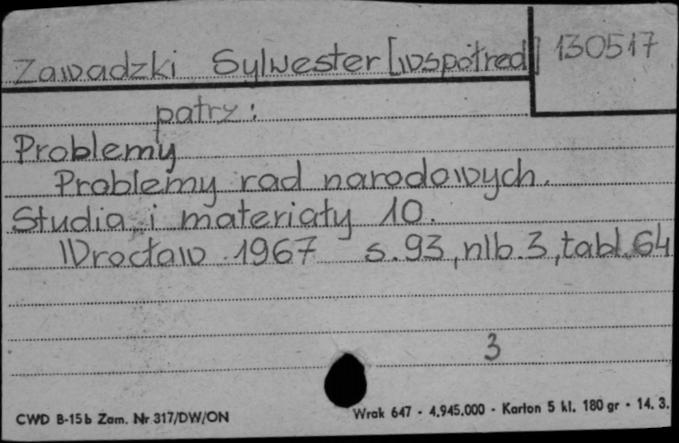 Zawadzki Sylwester [współred] 130517
patrz:
Problemy
Problemy rad narodowych.
Studia i materiały 10.
Wrocław 1967 s.93, nlb.3, tabl.64
3
CWD B-15b Zam. Nr 317/DW/ON
Wrak 647 - 4.945.000 - Karton 5 kl. 180 gr - 14. 3.